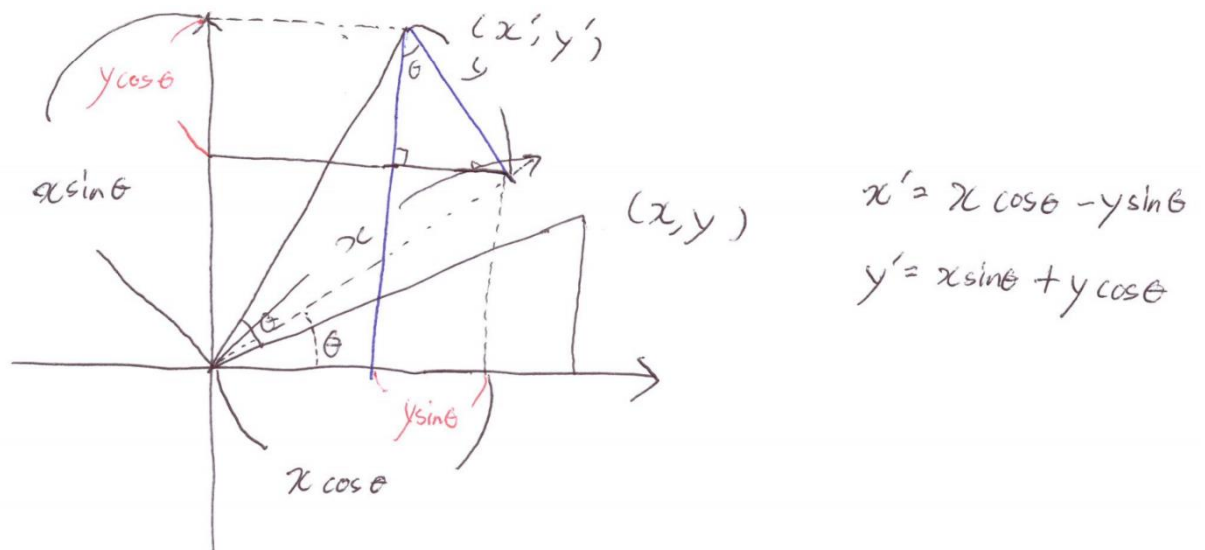 (x', y')
y
θ
y cosθ
x sinθ
x
(x, y)
θ
θ
y sinθ
x cosθ
x' = x cosθ - y sinθ
y' = x sinθ + y cosθ